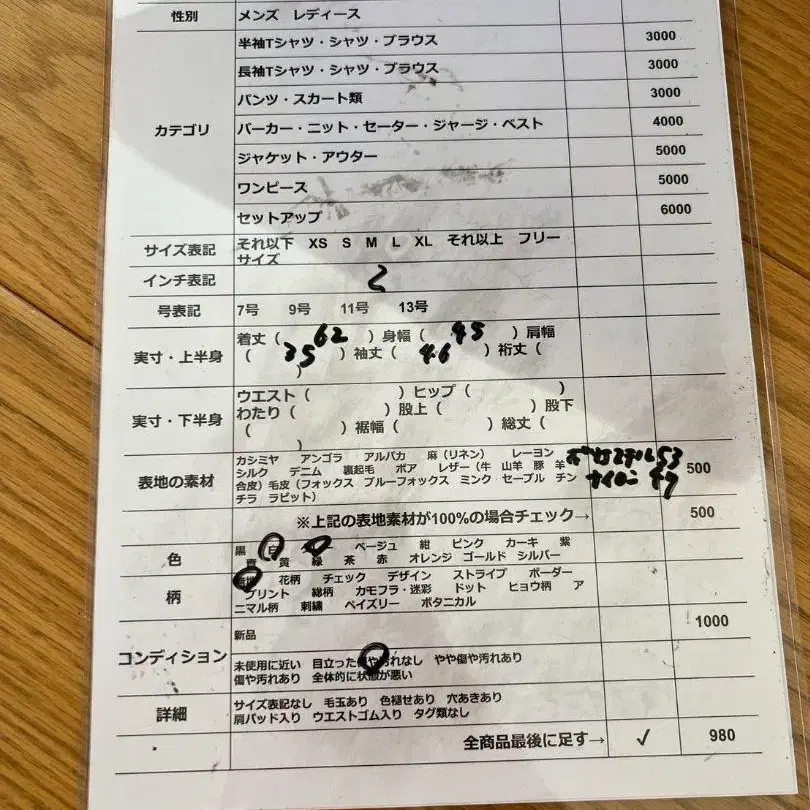 性別 メンズ レディース
カテゴリ
半袖Tシャツ・シャツ・ブラウス 3000
長袖Tシャツ・シャツ・ブラウス 3000
パンツ・スカート類 3000
パーカー・ニット・セーター・ジャージ・ベスト 4000
ジャケット・アウター 5000
ワンピース 5000
セットアップ 6000
サイズ表記 それ以下 XS S M L XL それ以上 フリー
サイズ
インチ表記 2
号表記 7号 9号 11号 13号
実寸・上半身 着丈（ 62 ）身幅（ 45 ）肩幅
（ 35 ）袖丈（ 46 ）裄丈（
）
実寸・下半身 ウエスト（ ）ヒップ（ ）
わたり（ ）股上（ ）股下
（ ）裾幅（ ）総丈（
）
表地の素材 カシミヤ アンゴラ アルパカ 麻（リネン） レーヨン ポリエステル53 500
シルク デニム 裏起毛 ボア レザー（牛 山羊 豚 羊 ナイロン 47
合皮）毛皮（フォックス ブルーフォックス ミンク セーブル チン
チラ ラビット）
※上記の表地素材が100%の場合チェック→ 500
色 黒 白 ベージュ 紺 ピンク カーキ 紫
青 黄 緑 茶 赤 オレンジ ゴールド シルバー
柄 無地 花柄 チェック デザイン ストライプ ボーダー
プリント 総柄 カモフラ・迷彩 ドット ヒョウ柄 ア
ニマル柄 刺繍 ペイズリー ボタニカル
コンディション 新品 1000
未使用に近い 目立った傷や汚れなし やや傷や汚れあり
傷や汚れあり 全体的に状態が悪い
詳細 サイズ表記なし 毛玉あり 色褪せあり 穴あきあり
肩パッド入り ウエストゴム入り タグ類なし
全商品最後に足す→ ✓ 980